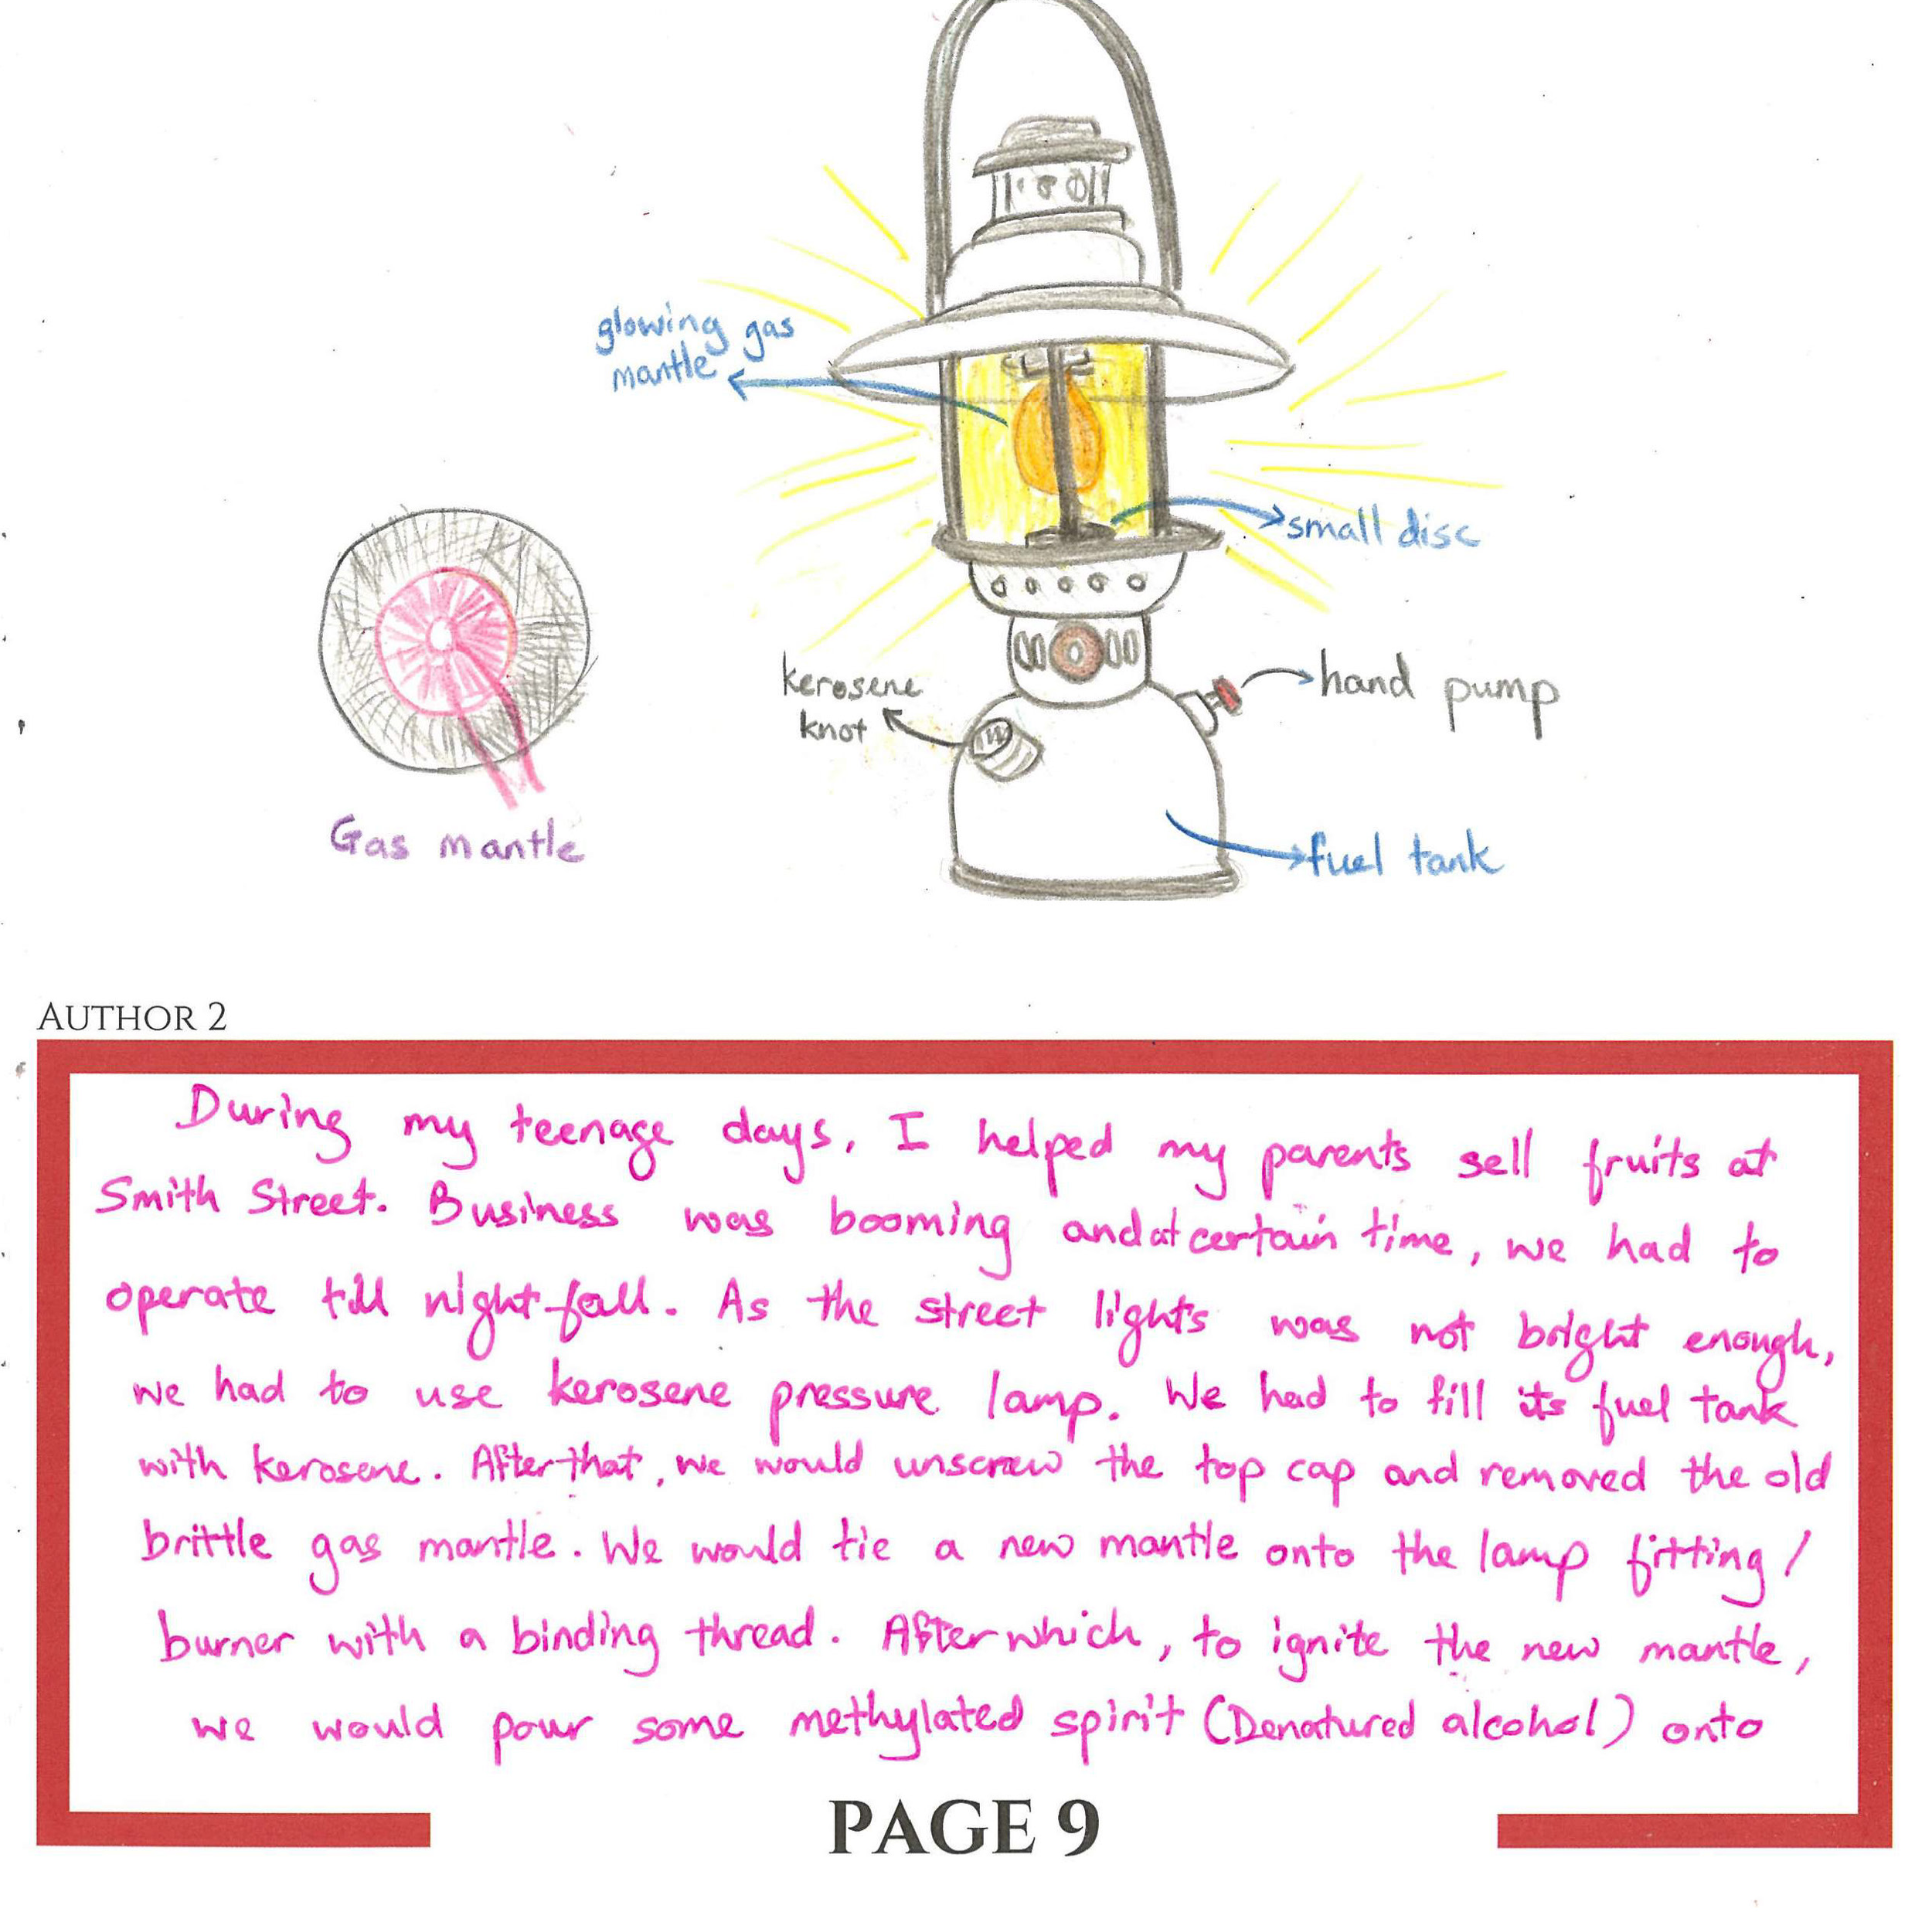 glowing gas
mantle
small disc
kerosene
knot
hand pump
Gas mantle
fuel tank
AUTHOR 2
During my teenage days, I helped my parents sell fruits at
Smith Street. Business was booming and at certain time, we had to
operate till nightfall. As the street lights was not bright enough,
we had to use kerosene pressure lamp. We had to fill its fuel tank
with kerosene. After that, we would unscrew the top cap and removed the old
brittle gas mantle. We would tie a new mantle onto the lamp fitting/
burner with a binding thread. After which, to ignite the new mantle,
we would pour some methylated spirit (Denatured alcohol) onto
PAGE 9